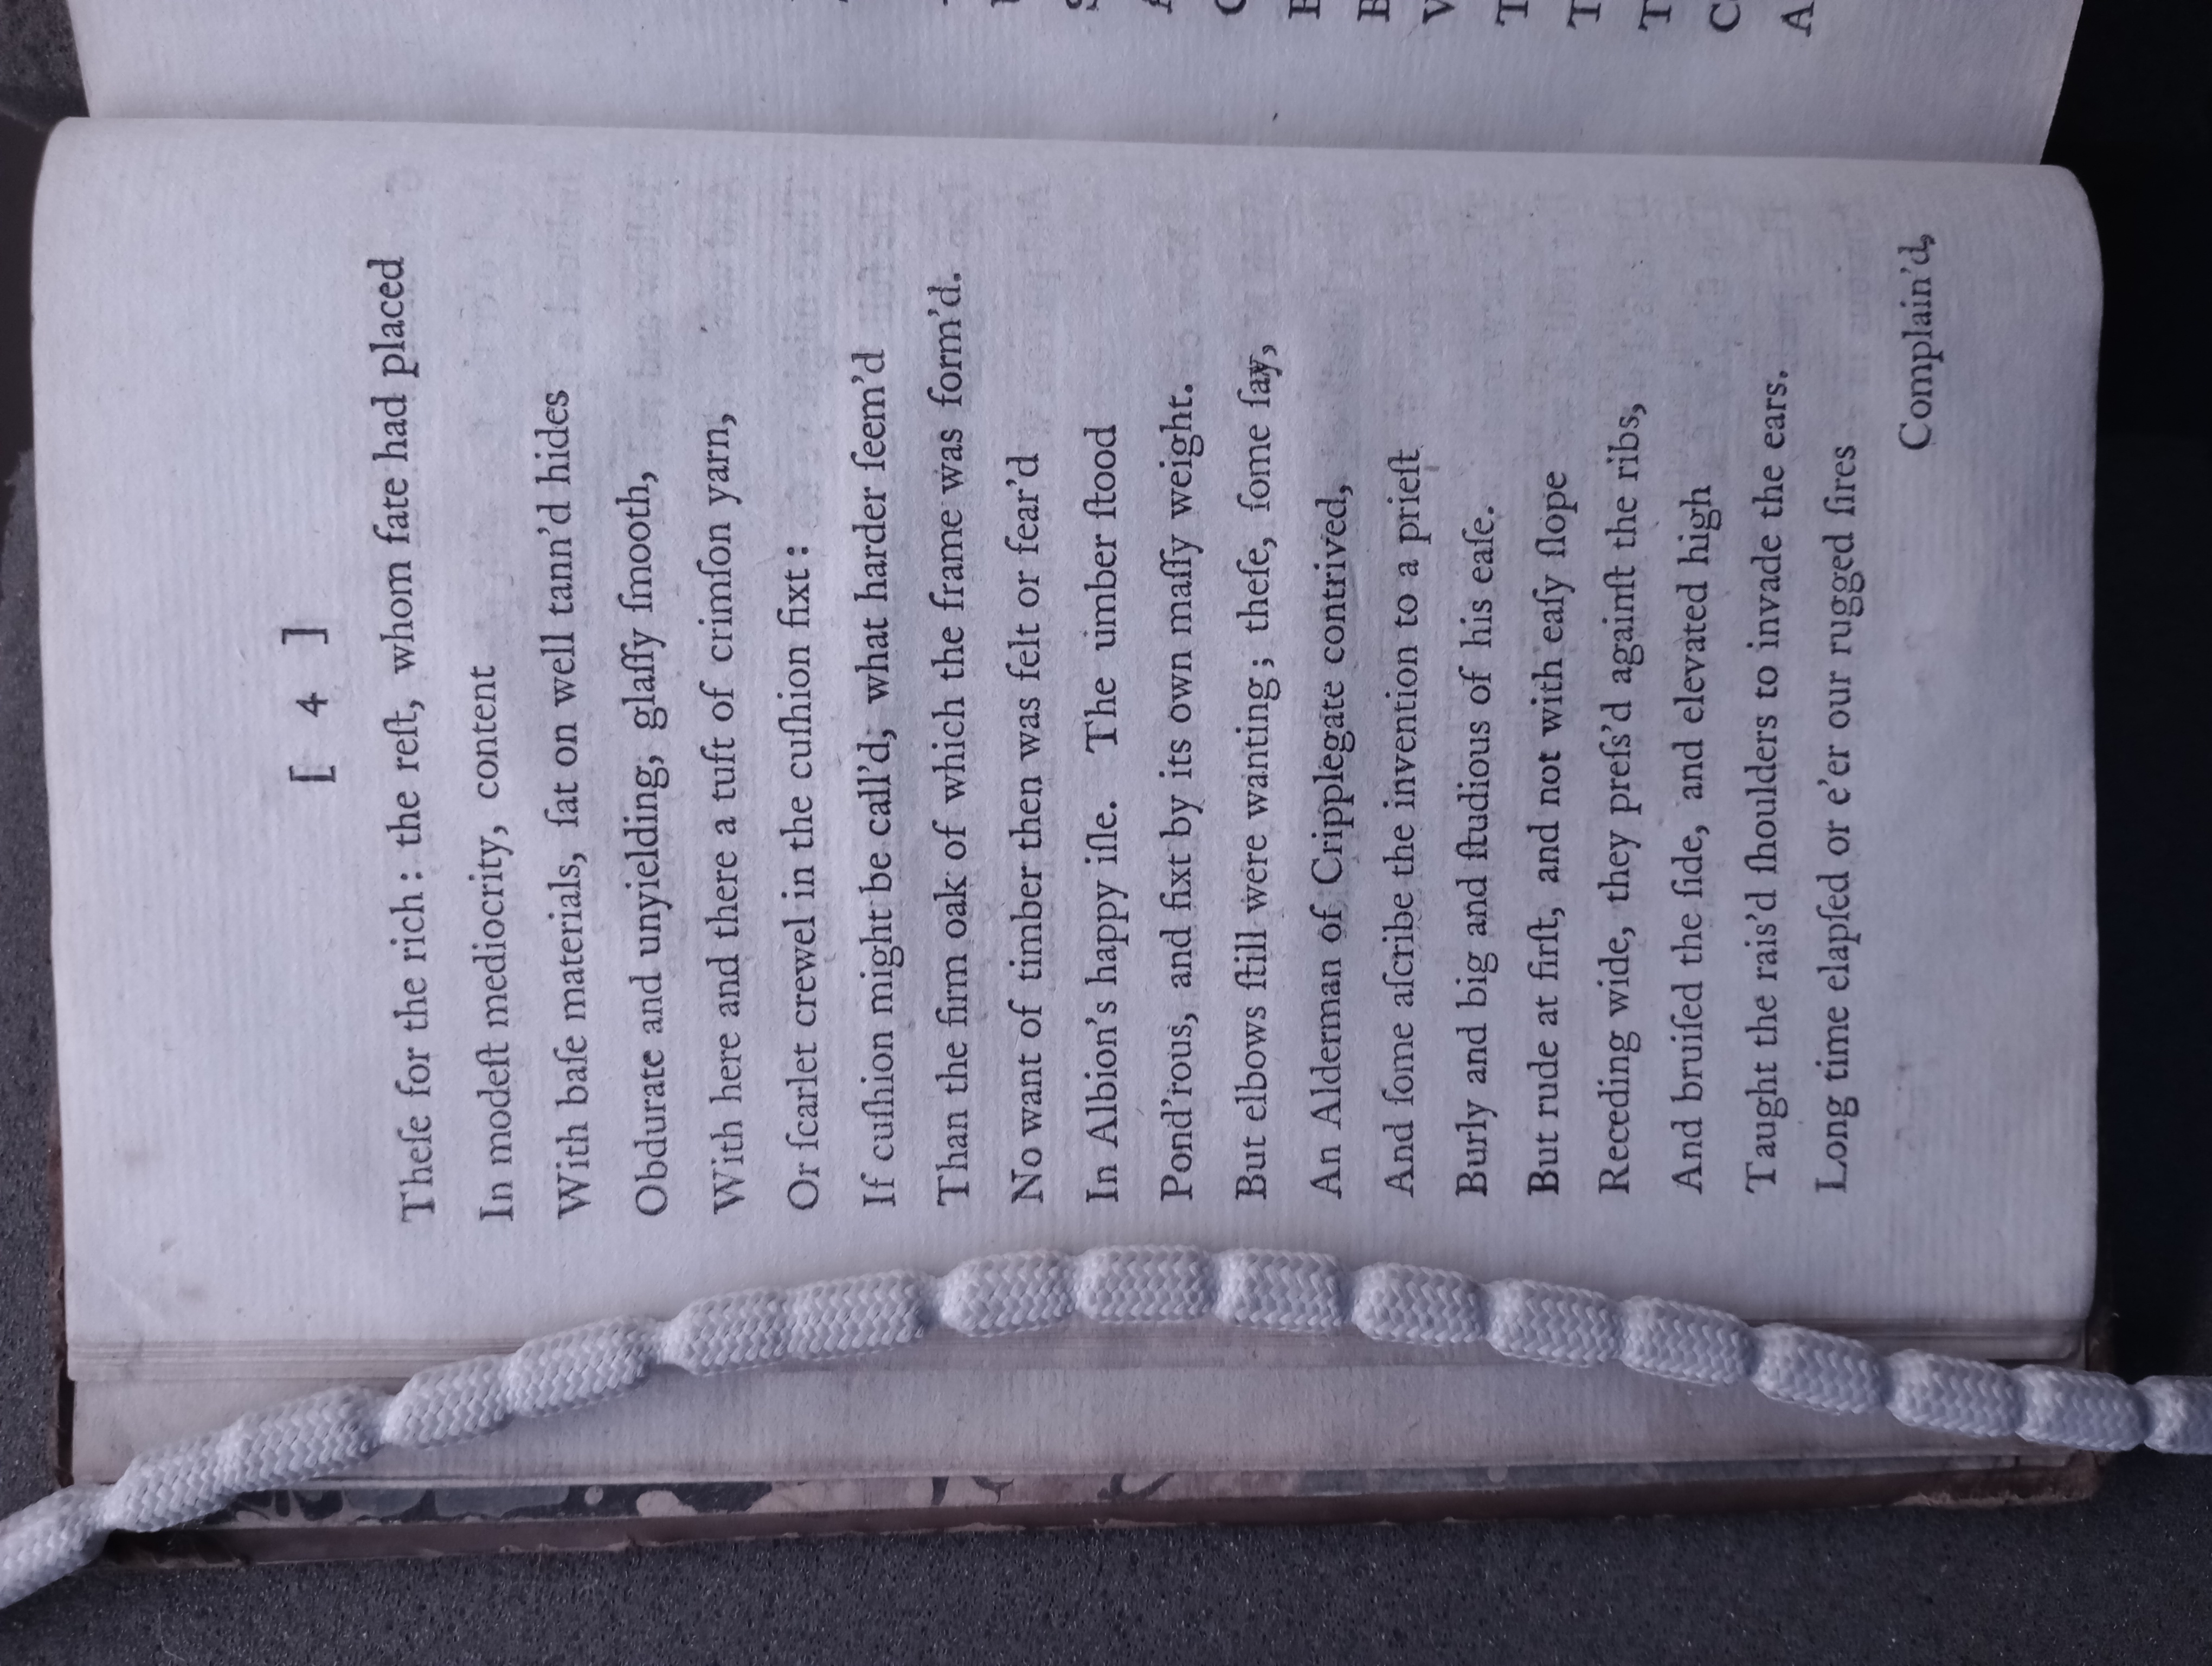 [ 4 ]
Theſe for the rich : the reſt, whom fate had placed
In modeſt mediocrity, content
With baſe materials, ſat on well tann'd hides
Obdurate and unyielding, glaſſy ſmooth,
With here and there a tuft of crimſon yarn,
Or ſcarlet crewel in the cuſhion fixt :
If cuſhion might be call'd, what harder ſeem'd
Than the firm oak of which the frame was form'd.
No want of timber then was felt or fear'd
In Albion's happy iſle. The umber ſtood
Pond'rous, and fixt by its own maſſy weight.
But elbows ſtill were wanting ; theſe, ſome ſay,
An Alderman of Cripplegate contrived,
And ſome aſcribe the invention to a prieſt
Burly and big and ſtudious of his eaſe.
But rude at firſt, and not with eaſy ſlope
Receding wide, they preſs'd againſt the ribs,
And bruiſed the ſide, and elevated high
Taught the rais'd ſhoulders to invade the ears.
Long time elapſed or e'er our rugged ſires
Complain'd,